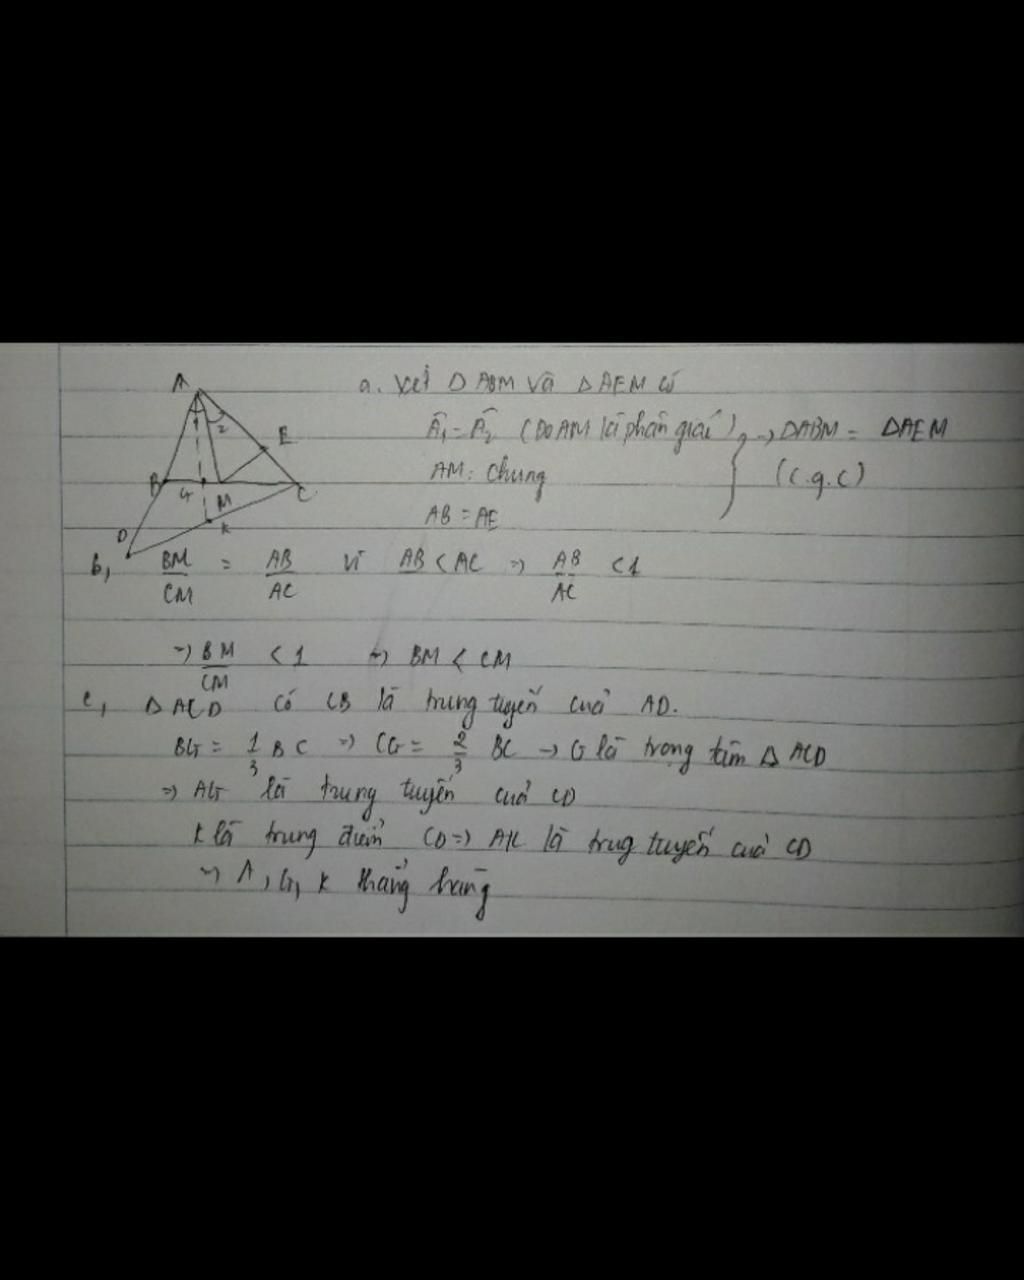 A
1 2
E
B G M C
K
D
a. Xét △ ABM và △ AEM có
Â1 = Â2 (Do AM là phân giác) → △ABM = △AEM
AM: Chung (c.g.c)
AB = AE
b, BM/CM = AB/AC vì AB < AC => AB/AC < 1
=> BM/CM < 1 => BM < CM
c, △ ACD có CB là trung tuyến cuả AD.
BG = 1/3 BC => CG = 2/3 BC → G là trọng tâm △ ACD
=> AG là trung tuyến cuả CD
K là trung điểm CD => AK là trug tuyến cuả CD
=> A, G, K thẳng hàng